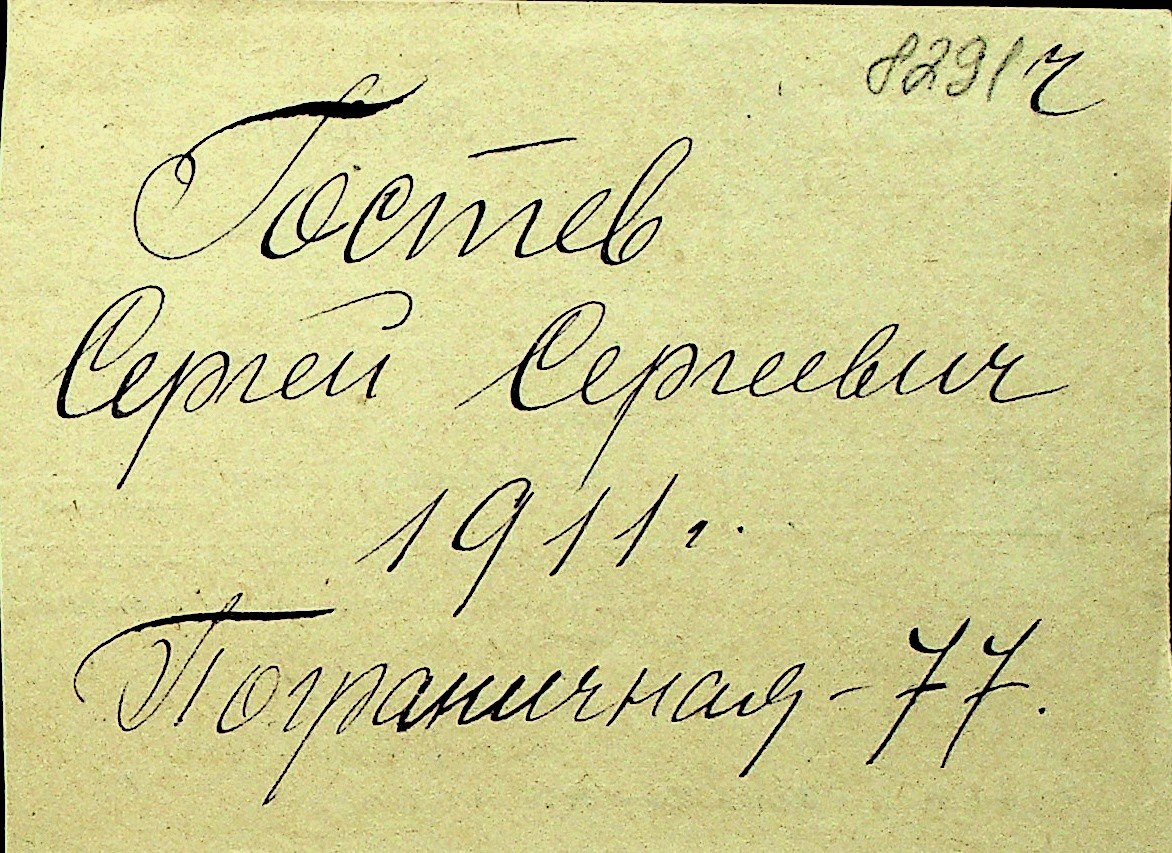 8291 ч
Гостев
Сергей Сергеевич
1911 г.
Пограничная - 77.